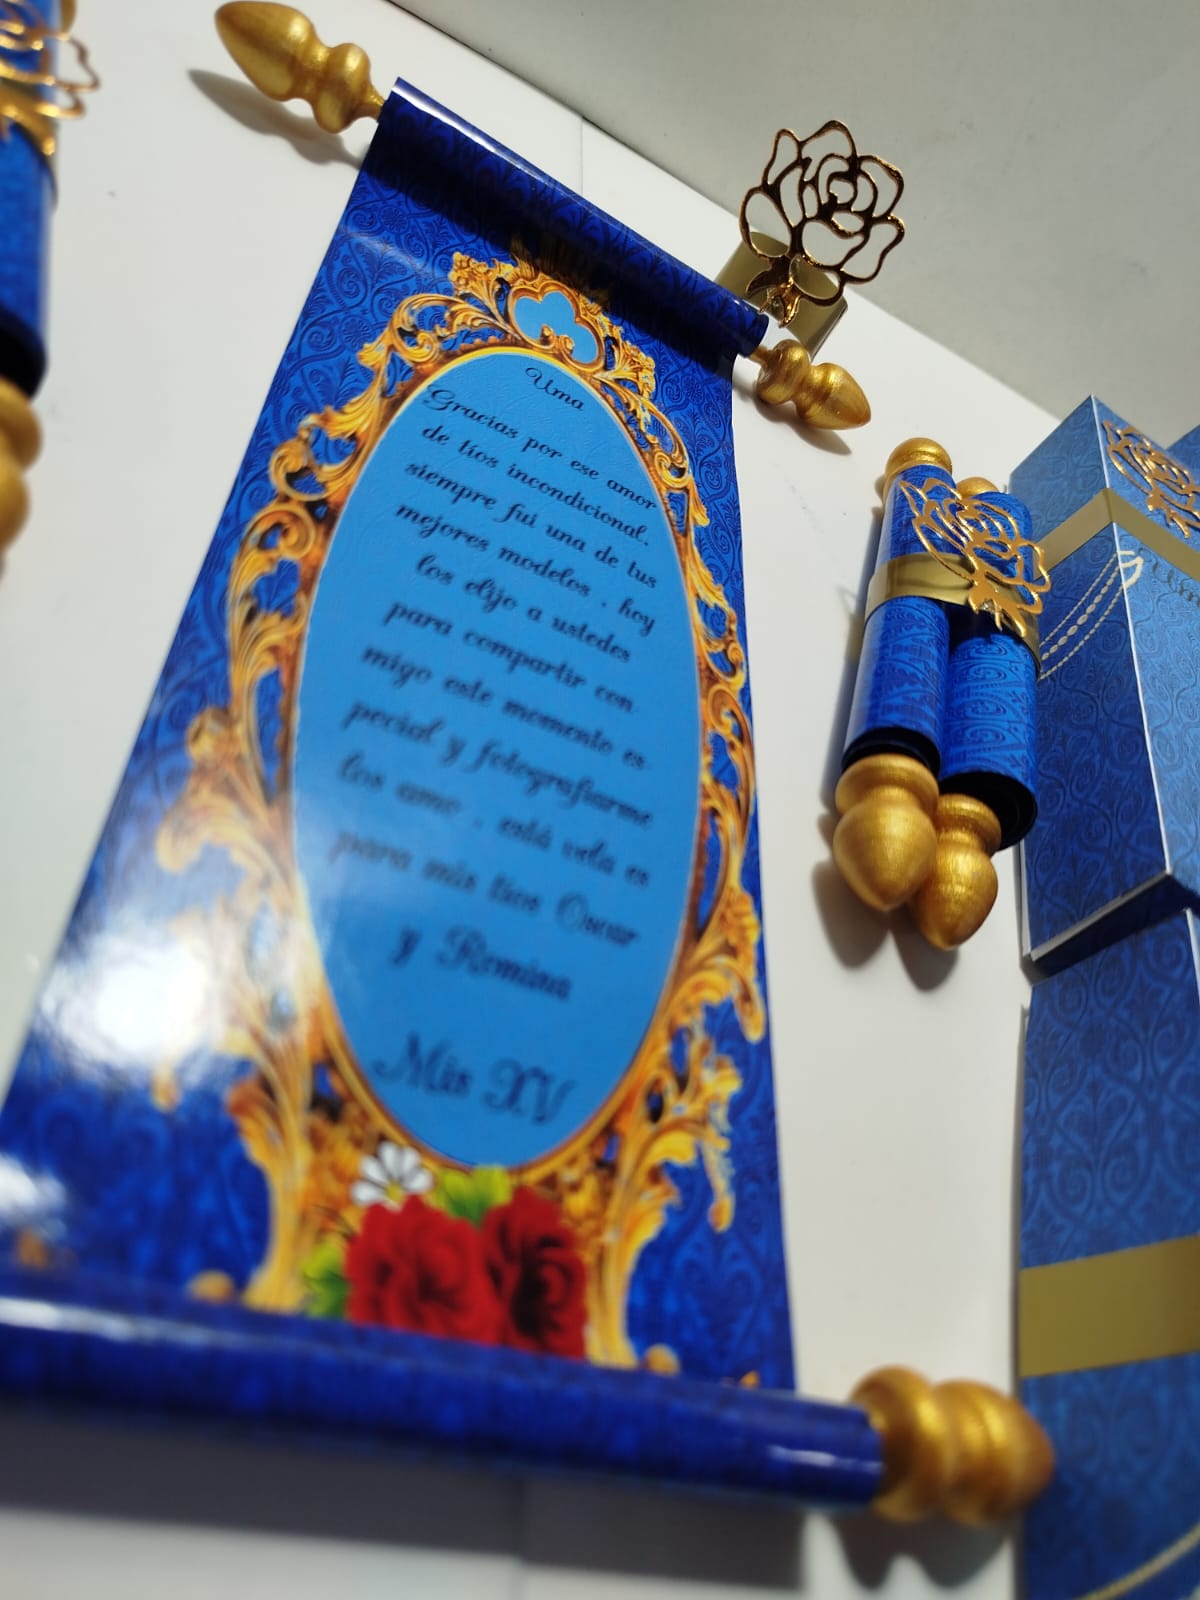 Uma
Gracias por ese amor
de tíos incondicional.
siempre fui una de tus
mejores modelos . hoy
los elijo a ustedes
para compartir con
migo este momento es
pecial y fotografiarme
los amo . está vela es
para mis tíos Oscar
y Romina
Mis XV